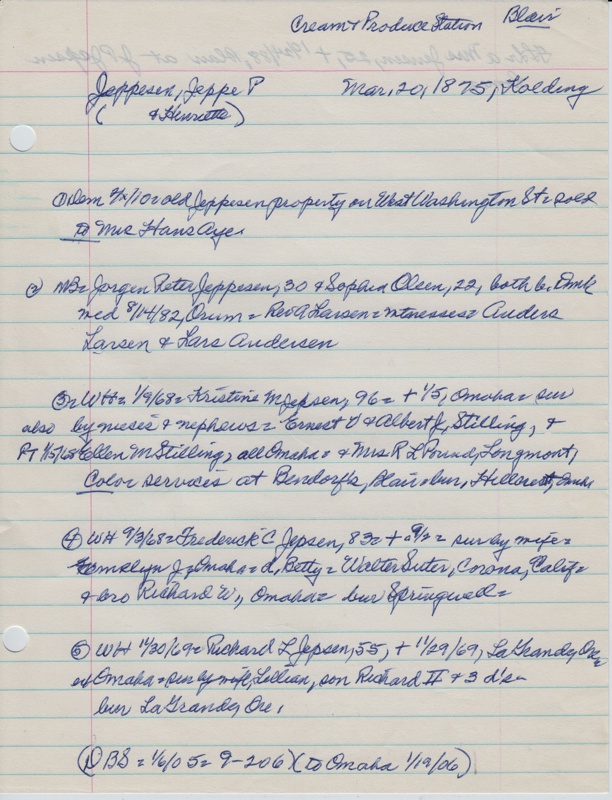 Cream & Produce Station Blair
Jeppesen, Jeppe P Mar, 20, 1875, Kolding
(& Henriette)
① Dem 9/1/10 = old Jeppesen property on West Washington St = sold
to Mrs Hans Aye.
② MB = Jorgen Peter Jeppesen, 30 & Sophia Olsen, 22, both b. Dmk
med 8/14/82, Orum = Rev A Larsen = witnesses = Anders
Larsen & Lars Andersen
③ = WH = 1/9/68 = Kristine M Jepsen, 96 = + 1/5, Omaha = sur
also by nieces & nephews = Ernest V & Albert J, Stilling, &
PT 1/15/68 Ellen M Stilling, all Omaha = & Mrs R L, Longmont,
Color services at Bendorf's, Blair = bur, Hillcrest, Omaha
④ WH 9/3/68 = Frederick C Jepsen, 83 = + 9/2 = sur by wife =
J = Omaha = d, Betty = Walter Suter, Corona, Calif =
& bro Richard W, Omaha = bur Springwell =
⑤ WH 11/30/69 = Richard L Jepsen, 55, + 11/29/69, LaGrande, Ore =
ex Omaha = sur by wife, Lillian, son Richard II & 3 d's =
bur LaGrande, Ore,
① DBS = 1/6/05 = 9-206) (to Omaha 1/19/06)